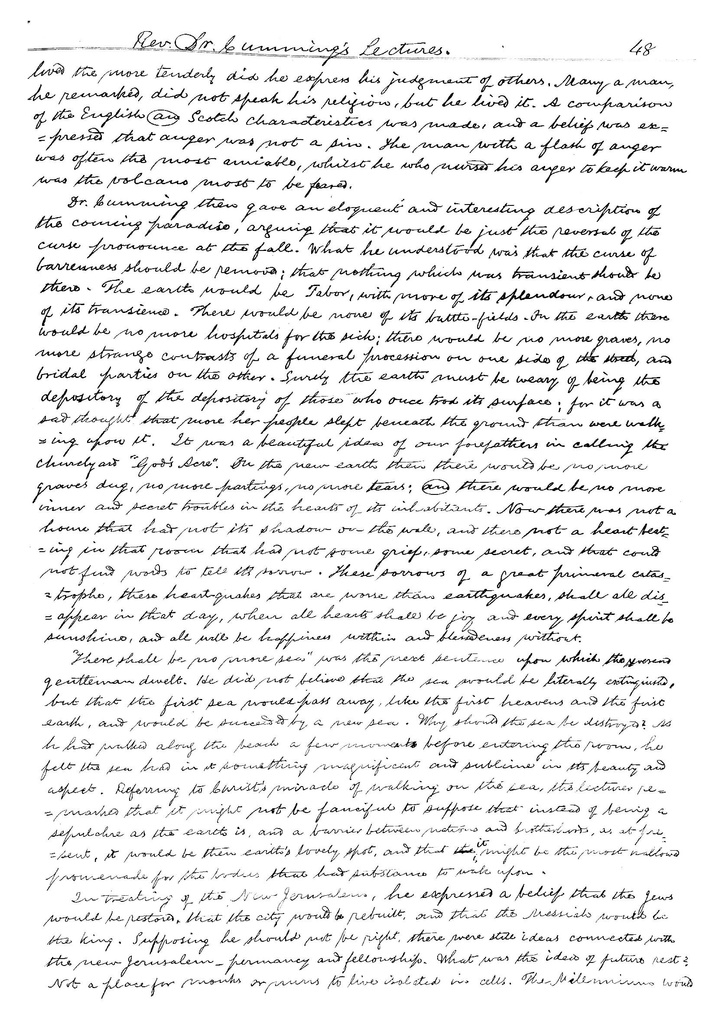 Rev. Dr. Cumming's Lectures. 48
lived the more tenderly did he express his judgment of others. Many a man,
he remarked, did not speak his religion, but he lived it. A comparison
of the English any Scotch characteristics was made, and a belief was ex=
=pressed that anger was not a sin. The man with a flash of anger
was often the most amiable, whilst he who nursed his anger to keep it warm
was the volcano most to be feared.
Dr. Cumming then gave an eloquent and interesting description of
the coming paradise, arguing that it would be just the reversal of the
curse pronounce at the fall. What he understood was that the curse of
barrenness should be remove; that nothing which was transient should be
there. The earth would be Tabor, with more of its splendour, and none
of its transience. There would be none of its battle-fields. In the earth there
would be no more hospitals for the sick; there would be no more graves, no
more strange contrasts of a funeral procession on one side of the street, and
bridal parties on the other. Surely the earth must be weary of being the
depository of the depository of those who once trod its surface; for it was a
sad thought that more her people slept beneath the ground than were walk=
=ing upon it. It was a beautiful idea of our forefathers in calling the
churchyard "God's Acre". In the new earth then there would be no more
graves dug, no more partings, no more tears; and there would be no more
inner and secret troubles in the hearts of its inhabitants. Now there was not a
home that had not its shadow on the wall, and there not a heart beat=
=ing in that room that had not some grief, some secret, and that could
not find words to tell its sorrow. These sorrows of a great primeval catas=
=trophe, these heart-quakes that are worse than earthquakes, shall all dis=
=appear in that day, when all hearts shall be joy and every spirit shall be
sunshine, and all will be happiness within and blessedness without.
"There shall be no more sea" was the next sentence upon which the reverend
gentleman dwelt. He did not believe that the sea would be literally extinguished,
but that the first sea would pass away, like the first heavens and the first
earth, and would be succeeded by a new sea. Why should the sea be destroyed? As
he had walked along the beach a few moments before entering the room, he
felt the sea had in it something magnificent and sublime in its beauty and
aspect. Referring to Christ's miracle of walking on the sea, the lecturer re=
=marked that it might not be fanciful to suppose that instead of being a
sepulchre as the earth is, and a barrier between nations and brotherhoods, as at pre=
=sent, it would be then earth's lovely spot, and that it might be the most hallowed
promenade for the bodies that had substance to walk upon.
In treating of the New Jerusalem, he expressed a belief that the Jews
would be restored, that the city would be rebuilt, and that the Messiah would be
the king. Supposing he should not be right, there were still ideas connected with
the new Jerusalem - permancy and fellowship. What was the idea of future rest?
Not a place for monks or nuns to live isolated in cells. The Millennium would